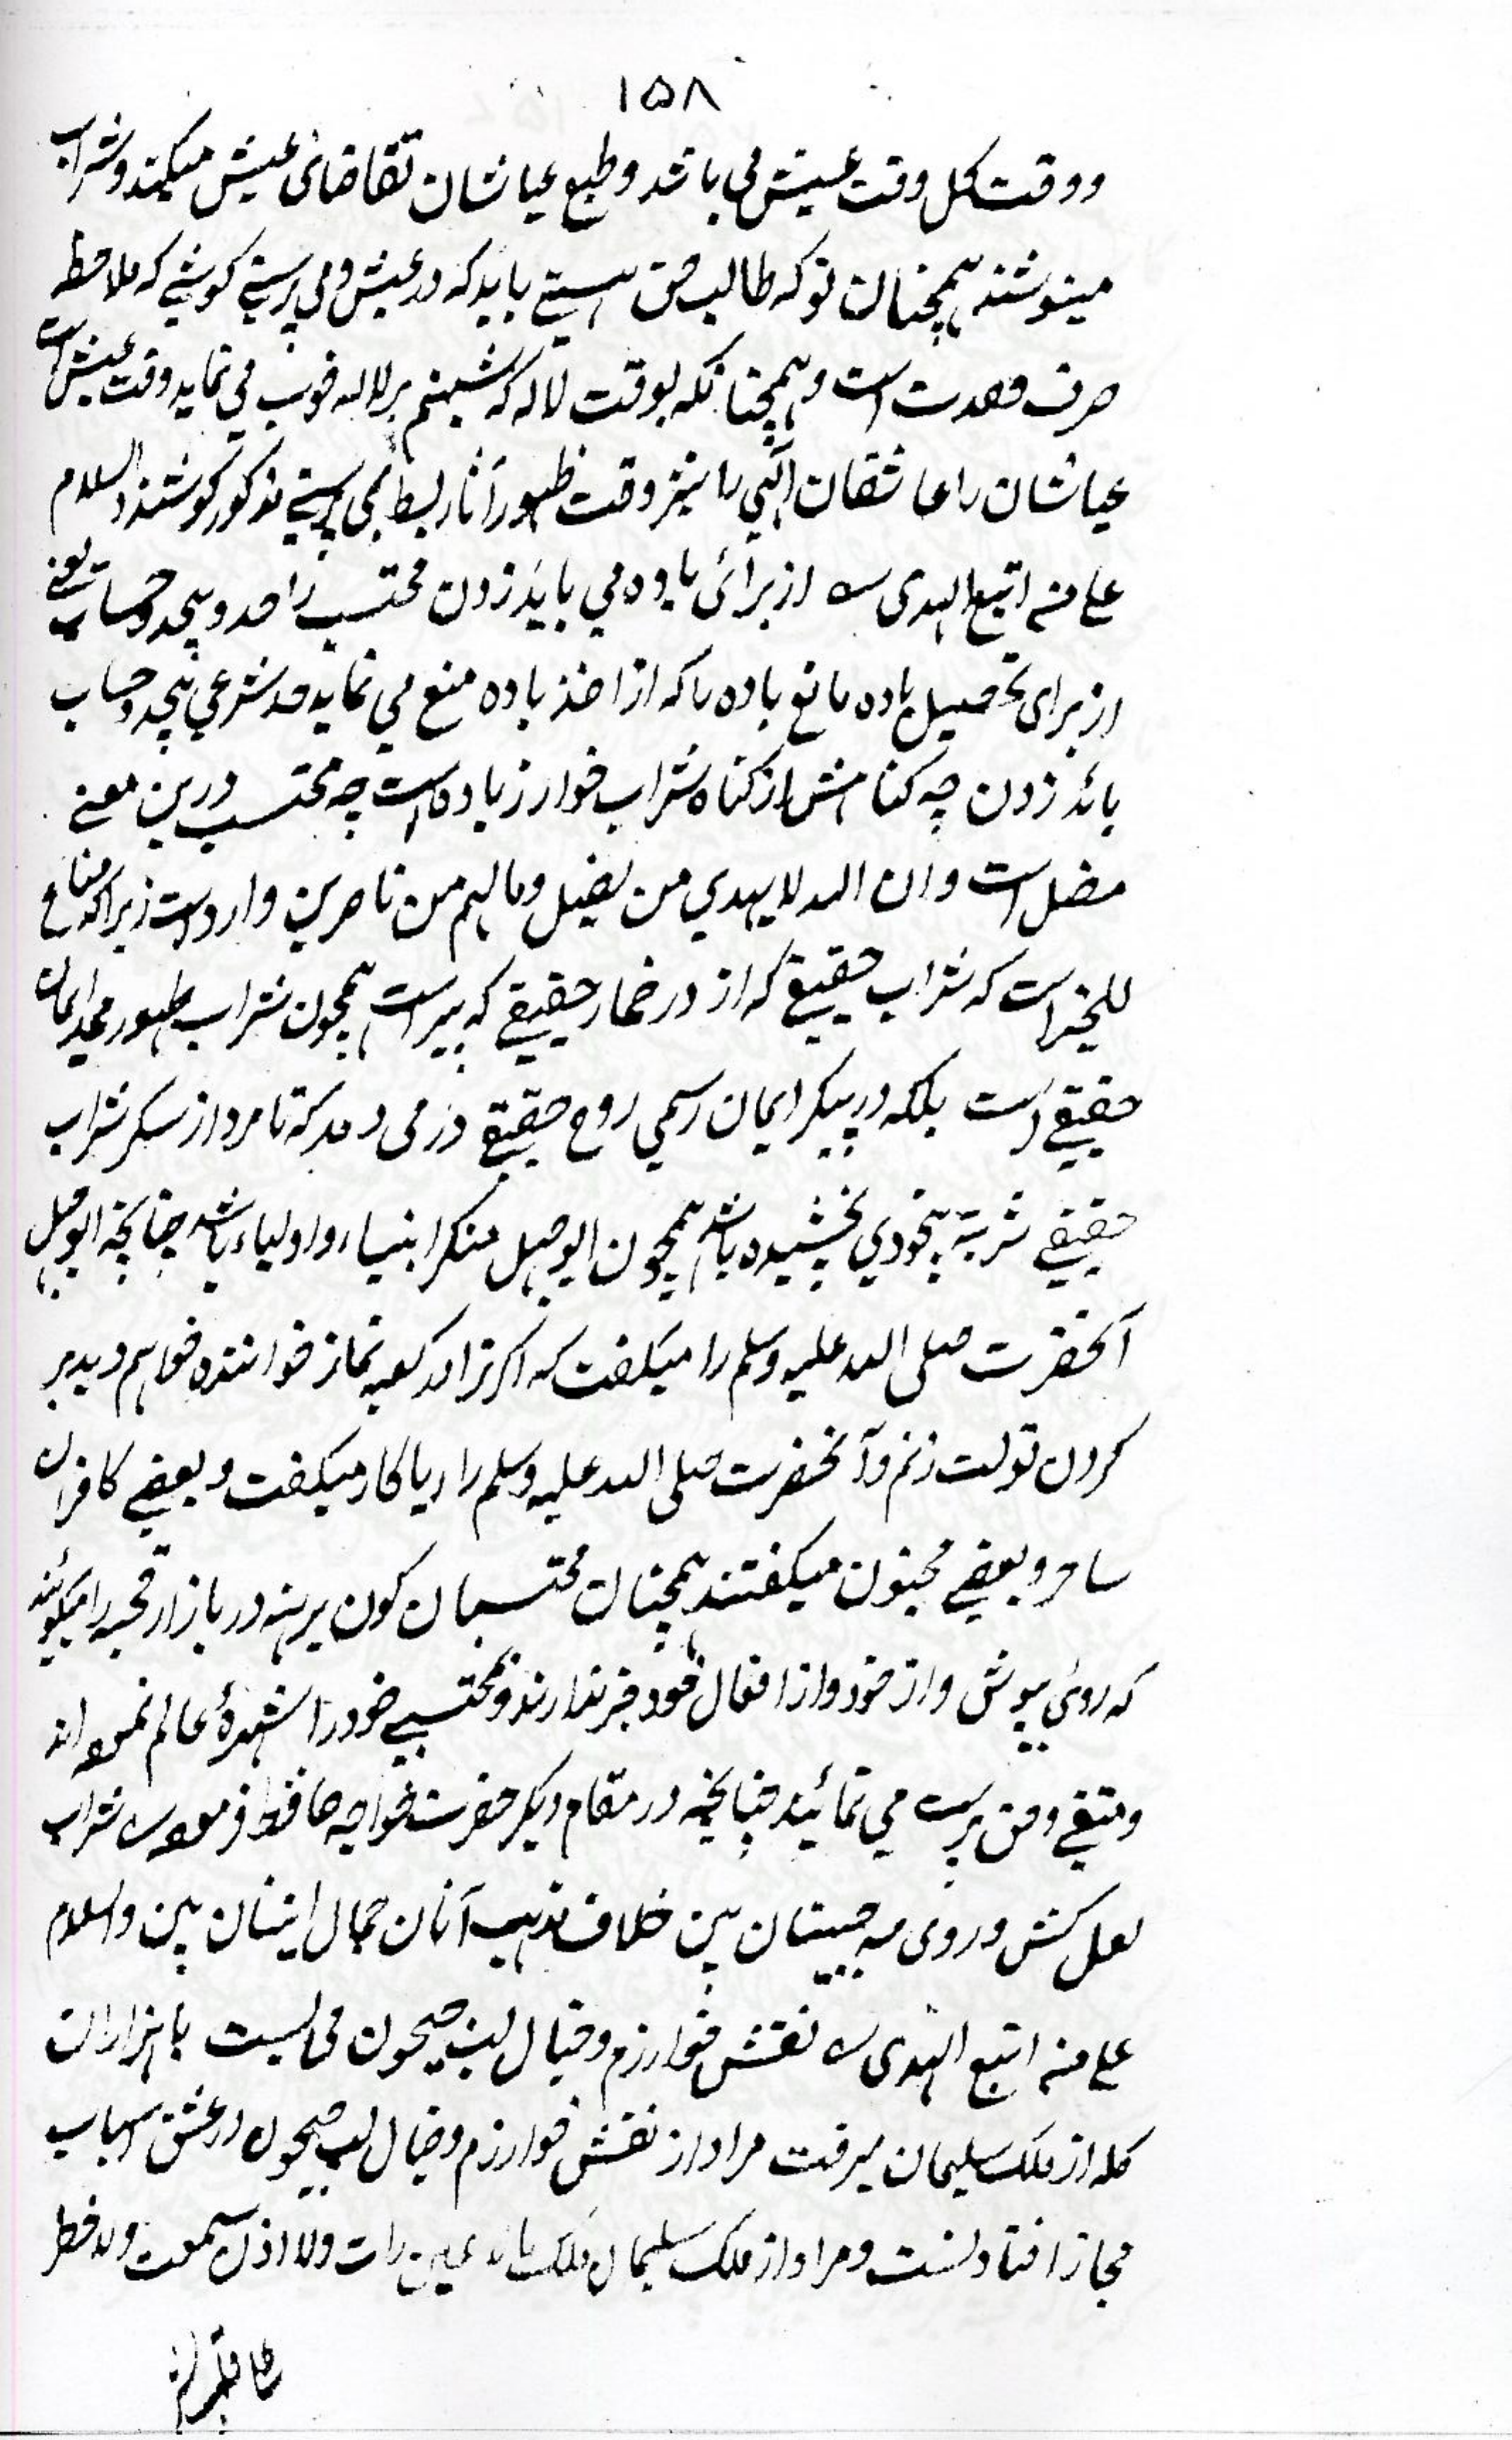 ۱۵۸
و وقت کل وقت عیش می باشد و طبع عیاشان تقاضائ عیش میکند و شراب
مینوشند همچنان تو که طالب حق هستی باید که در عیش و می پرستی کوشی که ملاحظه
صرف وحدت است و همچنانکه بوقت لاله که شبنم بر لاله خوب می نماید وقت عیش است
عیاشان را عاشقان الهی را نیز وقت ظهور آثار بسط بمی پرستی مذکور کوشند والسلام
علی من اتبع الهدی س از برائ باده می باید زدن محتسب را حد و بیحد و حساب یعنے
از برای تحصیل باده مانع باده را که از اخذ باده منع می نماید حد شرعی بیحد و حساب
بائد زدن چه کناهش از کناه شراب خوار زیاده است چه محتسب درین معنے
مضل است و ان الله لا یهدی من یضل و ما لهم من ناصرین وارد است زیرا که مناع
للخیر است که شراب حقیقی که از در خمار حقیقی که پیر است همچون شراب طهور ممد ایمان
حقیقی است بلکه در پیکر ایمان رسمی روح حقیقی در می دمد که تا مرد از سکر شراب
حقیقی شربة بیخودی نچشیده باشد همچون ابوجهل منکر انبیاء و اولیاء باشد چنانچه ابوجهل
آنحضرت صلی الله علیه وسلم را میکفت که اکر ترا در کعبه نماز خواننده خواهم دید بر
کردن تو لت زنم و آنحضرت صلی الله علیه وسلم را ریاکار میکفت و بعضے کافران
ساحر و بعضے مجنون میکفتند همچنان محتسبان کون برهنه در بازار قحبه را میکوئند
که روئ بپوش و از خود و از افعال خود خبر ندارند و بمحتسبے خود را شهرهٔ عالم نموده اند
و متقی و حق پرست می نمائید چنانچه در مقام دیکر حضرت خواجه حافظ فرموده س شراب
لعل کش و روئ مه جبینان بین خلاف مذهب آنان جمال اینان بین والسلام
علی من اتبع الهدی س نقش خوارزم و خیال لب جیحون می بست با هزاران
کله از ملک سلیمان میرفت مراد از نقش خوارزم و خیال لب جیحون در عشق اسباب
مجاز افتادنست و مراد از ملک سلیمان ملک ما لا عین رات ولا اذن سمعت ولا خطر
علی قلب